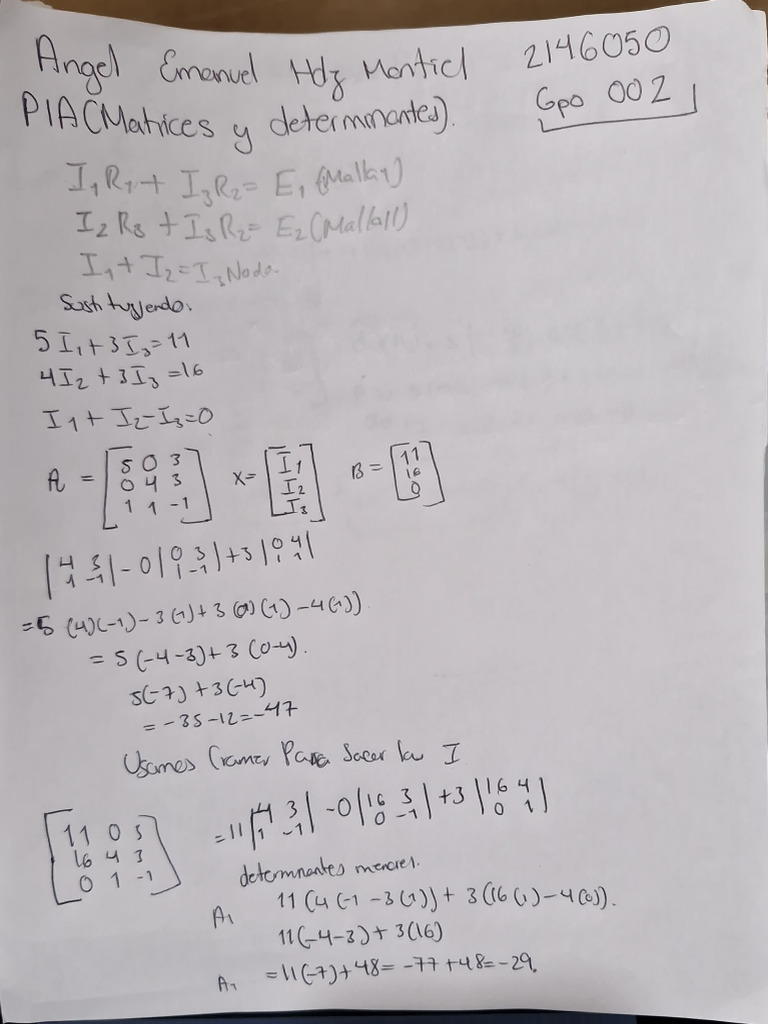 Angel Emanuel Hdz Montiel 2146050
PIA(Matrices y determinantes). Gpo 002
I₁R₁ + I₃R₂ = E₁ (Malla1)
I₂R₃ + I₃R₂ = E₂ (Malla11)
I₁ + I₂ = I₃ Nodo.
Sustituyendo.
5I₁ + 3I₃ = 11
4I₂ + 3I₃ = 16
I₁ + I₂ - I₃ = 0
A = [5 0 3 X = [I₁ B = [11
0 4 3 I₂ 16
1 1 -1] I₃] 0]
|4 3 | - 0 |0 3 | + 3 |0 4|
|1 -1| |1 -1| |1 1|
= 5 (4)(-1) - 3(1) + 3 (0)(1) - 4(1))
= 5(-4-3) + 3(0-4).
5(-7) + 3(-4)
= -35 - 12 = -47
Usamos Cramer Para Sacar la I
[11 0 3 = 11 |4 3 | - 0 |16 3 | + 3 |16 4|
16 4 3 |1 -1| |0 -1| |0 1|
0 1 -1]
determnantes menores.
A₁ 11(4(-1 - 3(1)) + 3(16(1) - 4(0)).
11(-4-3) + 3(16)
A₁ = 11(-7) + 48 = -77 + 48 = -29.